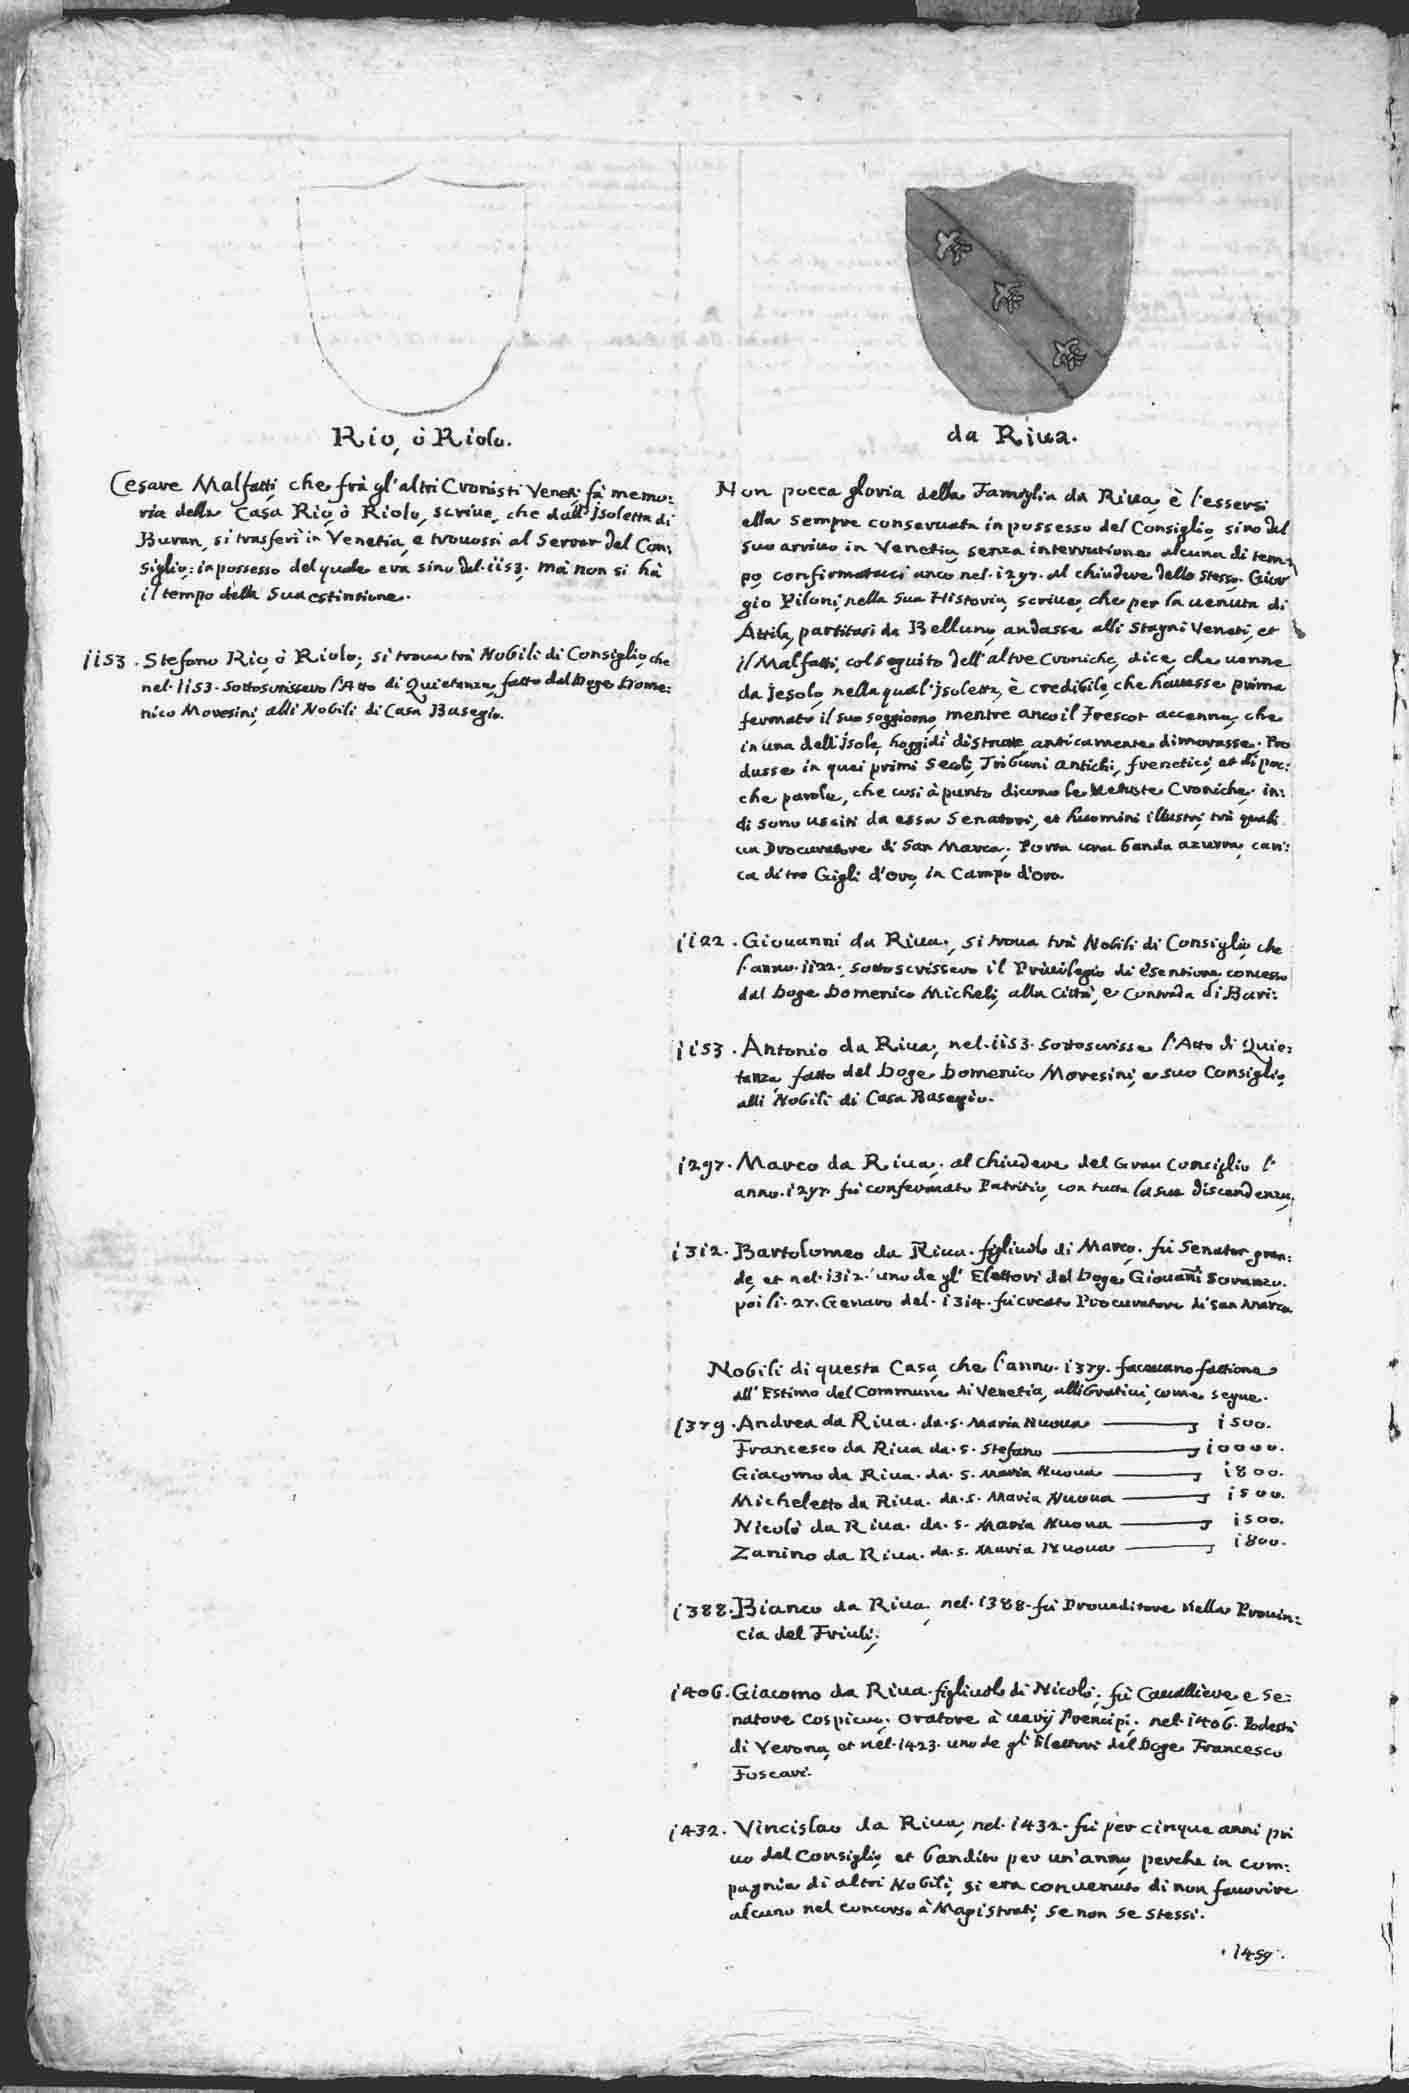 Rio, ò Riolo.
Cesare Malfatti, che frà gl'altri Cronisti Veneti fà memo:
ria della Casa Rio, ò Riolo, scriue, che dall'Isoletta di
Buran, si trasferì in Venetia, e trouossi al Serrar del Con:
siglio: in possesso del quale era sino dal. 1153. mà non si hà
il tempo della sua estintione.
1153. Stefano Rio, ò Riolo; si troua trà Nobili di Consiglio, che
nel. 1153. sottoscrissero l'Atto di Quietanza, fatto dal Doge Dome:
nico Moresini, alli Nobili di Casa Basegio.
da Riua.
Non pocca gloria della Famiglia da Riua, è l'essersi
ella sempre conseruata in possesso del Consiglio, sino dal
suo arriuo in Venetia, senza interrutione alcuna di tem:
po, confirmataci anco nel. 1297. al chiudere dello stesso. Gior
gio Piloni, nella sua Historia, scriue, che per la uenuta di
Attila, partitasi da Belluno, andasse alli Stagni Veneti, et
il Malfatti, col seguito dell'altre Croniche, dice, che uenne
da Jesolo, nella qual'Isoletta, è credibile, che hauesse prima
fermato il suo soggiorno, mentre anco il Frescot accenna, che
in una dell'Isole, hoggidì distrutte, anticamente dimorasse. Pro
dusse in quei primi Secoli, Tribuni antichi, frenetici, et di poc:
che parole, che così à punto dicono le uetuste Croniche. in:
di sono usciti da essa Senatori, et huomini illustri, trà quali
un Procuratore di San Marco. Porta una banda azurra, cari:
ca di tre Gigli d'oro, in Campo d'oro.
1122. Giouanni da Riua, si troua trà Nobili di Consiglio, che
l'anno. 1122. sottoscrissero il Priuilegio di esentione, concesso
dal Doge Domenico Micheli, alla Città, e Contrada di Bari.
1153. Antonio da Riua, nel. 1153. sottoscrisse l'Atto di Quie:
tanza, fatto dal Doge Domenico Moresini, e suo Consiglio,
alli Nobili di Casa Basegio.
1297. Marco da Riua. al chiudere del Gran Consiglio l'
anno. 1297. fù confermato Patritio, con tutta la sua discendenza.
1312. Bartolomeo da Riua. figliuolo di Marco. fù Senator gran:
de, et nel. 1312. uno de gl' Elettori del Doge Giouanni Soranzo.
poi li. 27. Genaro del. 1314. fù creato Procuratore di San Marco
Nobili di questa Casa, che l'anno. 1379. faceuano fattione
all'Estimo del Commune di Venetia, alli Gratici, come segue.
1379. Andrea da Riua. da. S. Maria Nuoua 1500.
Francesco da Riua da. S. Stefano 10000.
Giacomo da Riua. da. S. Maria Nuoua 1800.
Micheletto da Riua. da. S. Maria Nuoua 1500.
Nicolò da Riua. da. S. Maria Nuoua 1500.
Zanino da Riua. da. S. Maria Nuoua 1800.
1388. Bianco da Riua, nel. 1388. fù Proueditore nella Prouin:
cia del Friuli.
1406. Giacomo da Riua. figliuolo di Nicolò. fù Caualliere, e Se:
natore cospicuo. oratore à uarij Prencipi. nel. 1406. Podestà
di Verona, et nel. 1423. uno de gl'Elettori del Doge Francesco
Foscari.
1432. Vincislao da Riua, nel. 1432. fù per cinque anni pri
uo del Consiglio, et bandito per un'anno, perche in com:
pagnia di altri Nobili, si era conuenuto di non fauorire
alcuno nel concorso à Magistrati, se non se stessi.
. 1459.